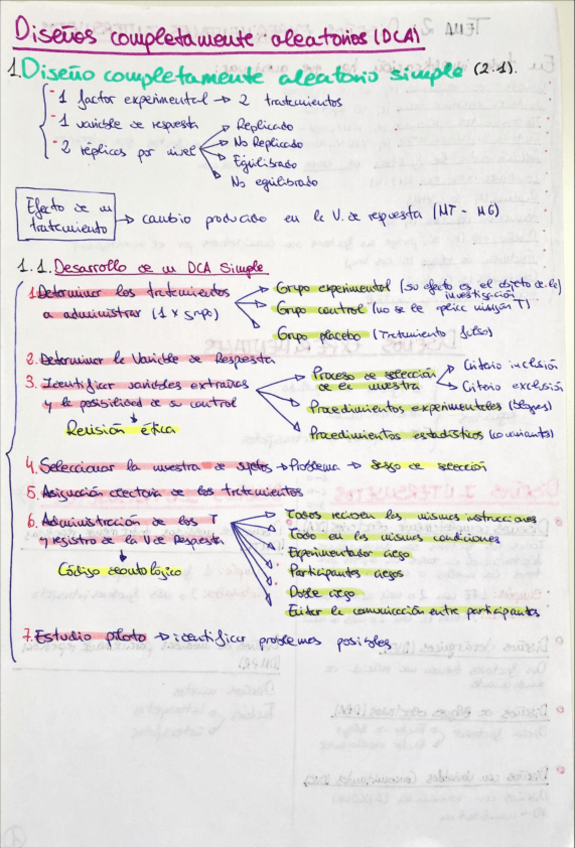 Diseños completamente aleatorios (DCA)
1. Diseño completamente aleatorio simple (2.1).
- 1 factor experimental → 2 tratamientos
- 1 variable de respuesta
- 2 réplicas por nivel
Replicado
No Replicado
Equilibrado
No equilibrado
Efecto de un tratamiento → cambio producido en la V. de respuesta (MT - MG)
1.1. Desarrollo de un DCA Simple
1. Determinar los tratamientos
a administrar (1 x grupo)
Grupo experimental (su efecto es el objeto de la
investigación
Grupo control (no se le aplica ningún T)
Grupo placebo (Tratamiento falso)
2. Determinar la Variable de Respuesta
3. Identificar variables extrañas
y la posibilidad de su control
Revisión ética
Proceso de selección
de la muestra
Criterio inclusión
Criterio exclusión
Procedimientos experimentales (bloques)
Procedimientos estadísticos (covariantes)
4. Seleccionar la muestra de sujetos → Problema → sesgo de selección
5. Asignación aleatoria de los tratamientos
6. Administración de los T
y registro de la V de Respuesta
Código deontológico
Todos reciben las mismas instrucciones
Todo en las mismas condiciones
Experimentador ciego
Participantes ciegos
Doble ciego
Evitar la comunicación entre participantes
7. Estudio piloto → identificar problemas posibles